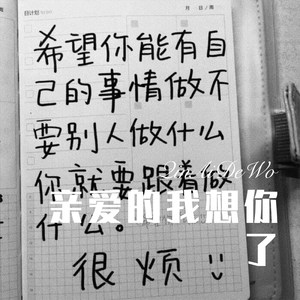 月 日/周
希望你能有自
己的事情做不
要别人做什么
你就要跟着做
什么。
很烦
亲爱的我想你
了